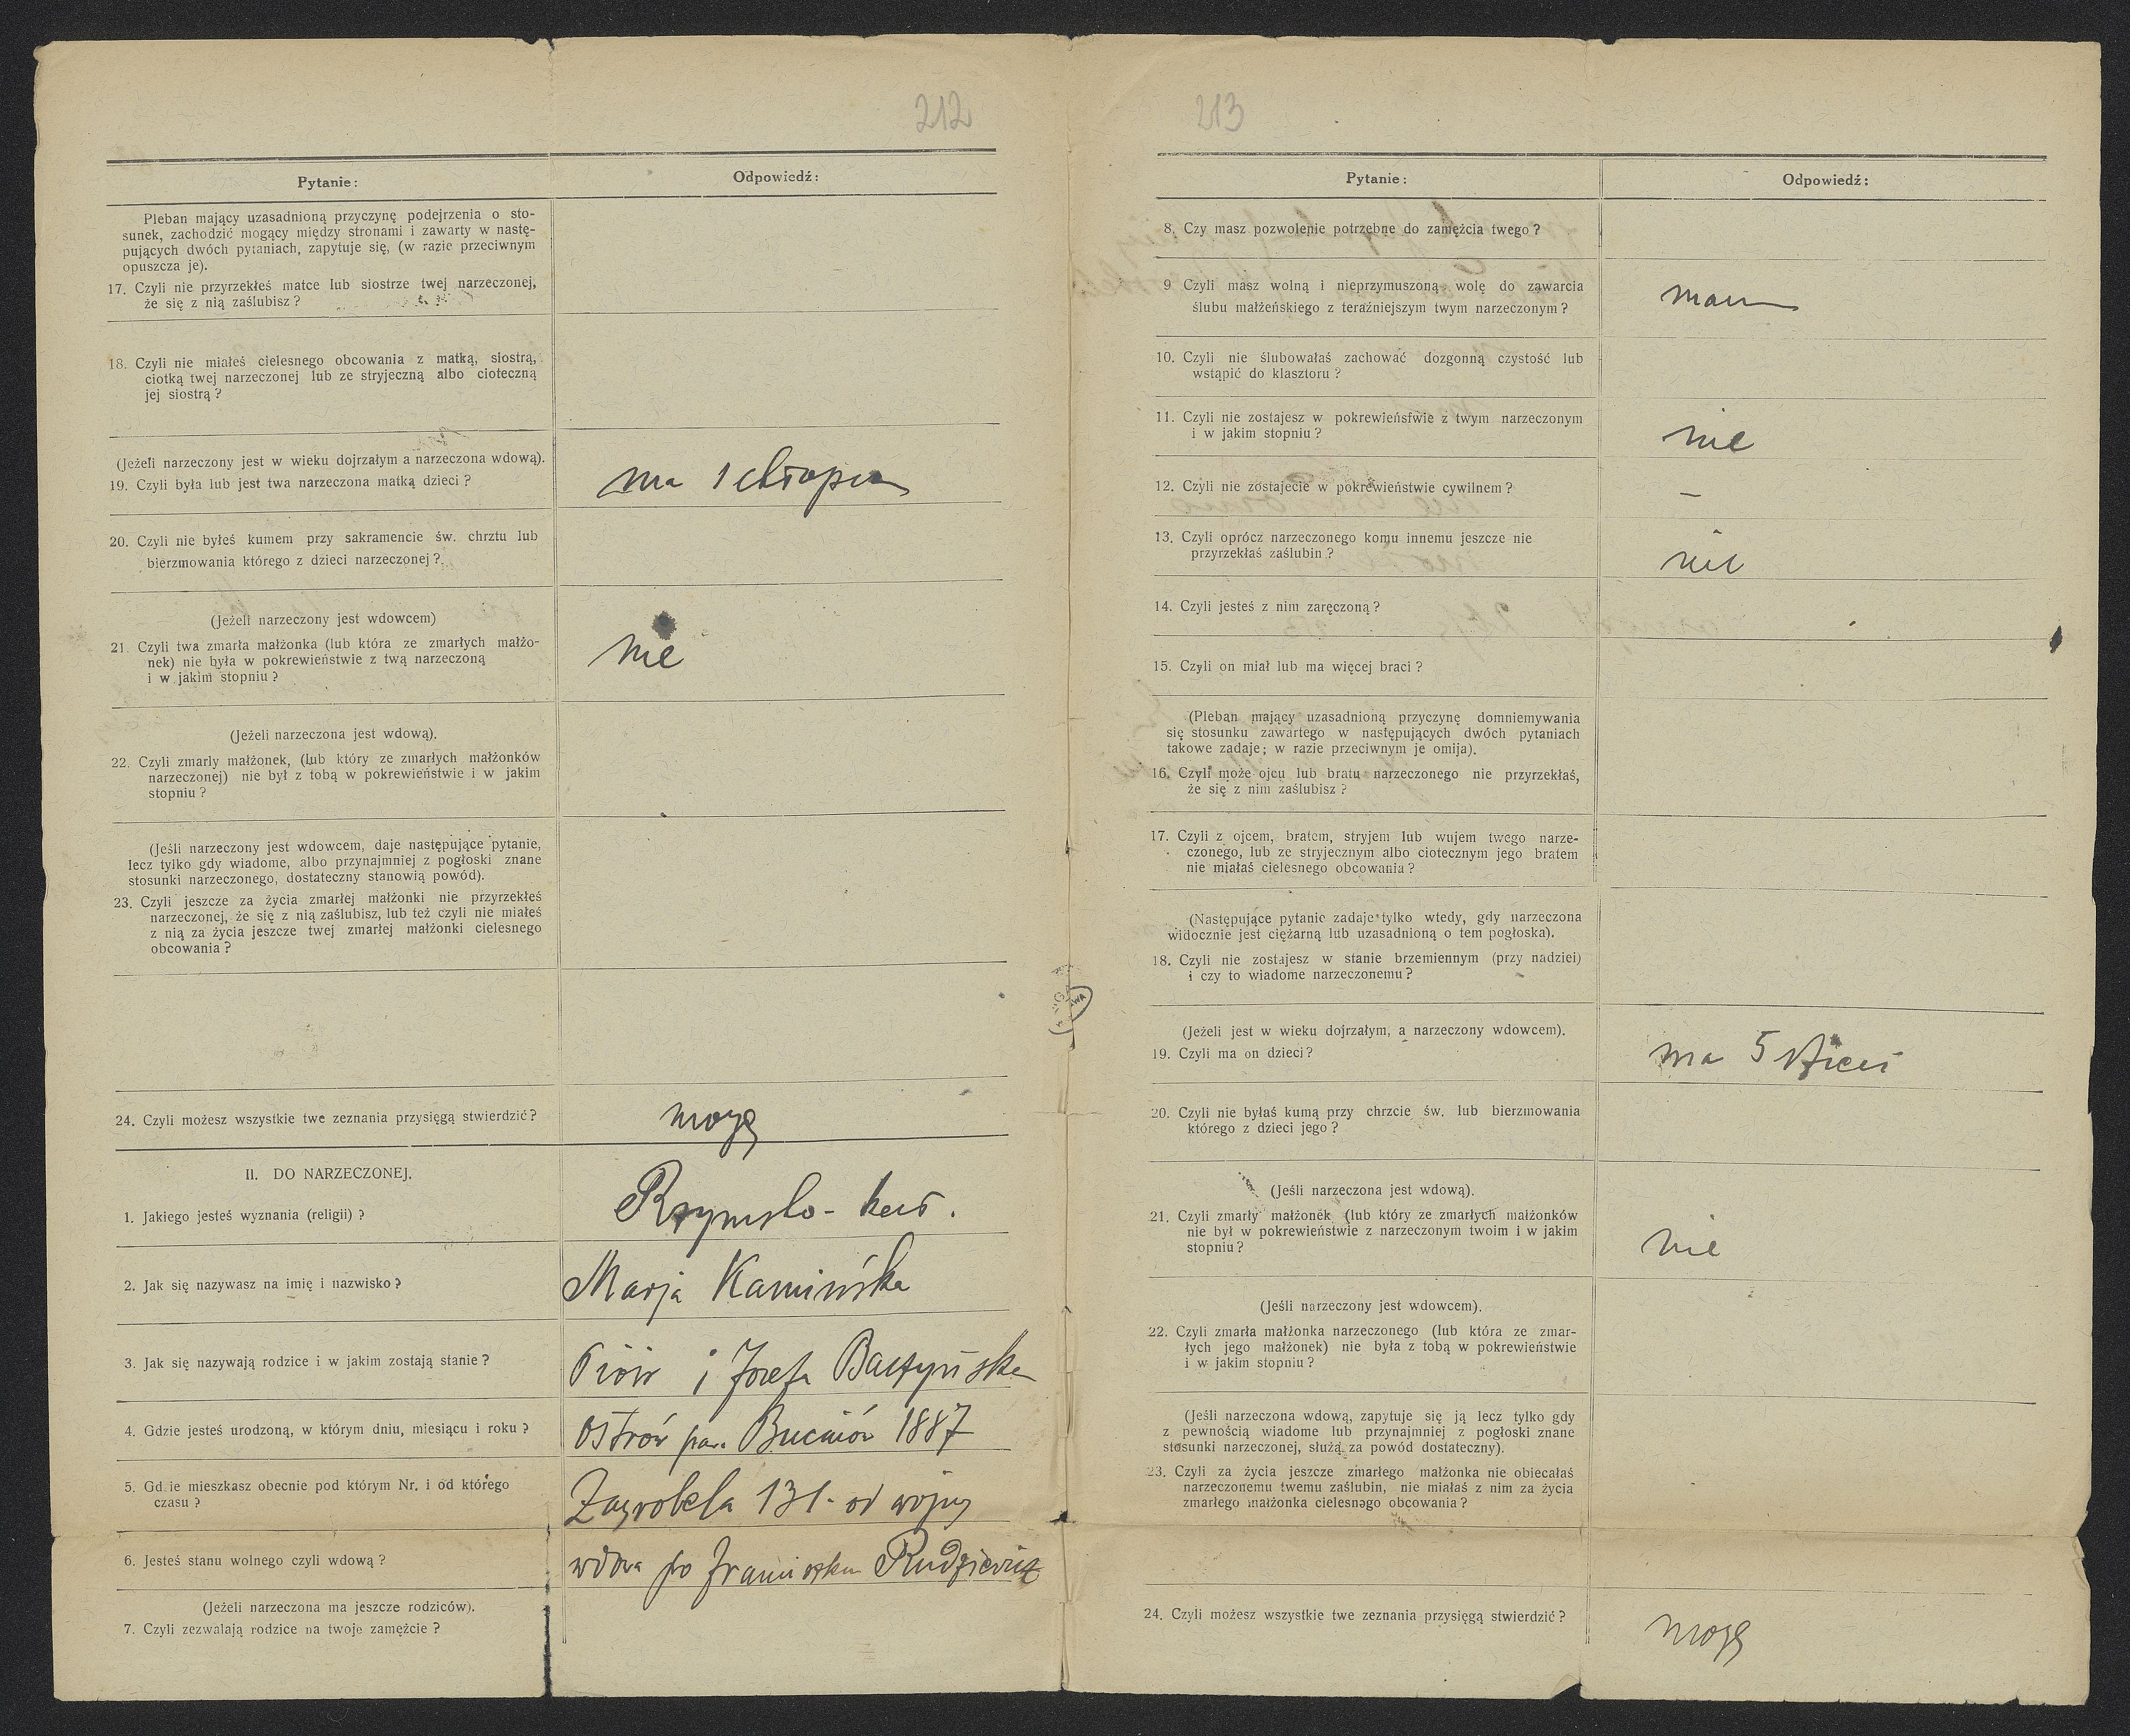 212
Pytanie:
Odpowiedź:
Pleban mający uzasadnioną przyczynę podejrzenia o sto-
sunek, zachodzić mogący między stronami i zawarty w nastę-
pujących dwóch pytaniach, zapytuje się, (w razie przeciwnym
opuszcza je).
17. Czyli nie przyrzekłeś matce lub siostrze twej narzeczonej,
że się z nią zaślubisz?
18. Czyli nie miałeś cielesnego obcowania z matką, siostrą,
ciotką twej narzeczonej lub ze stryjeczną albo cioteczną
jej siostrą?
(Jeżeli narzeczony jest w wieku dojrzałym a narzeczona wdową).
19. Czyli była lub jest twa narzeczona matką dzieci?
ma 1 chłopca
20. Czyli nie byłeś kumem przy sakramencie św. chrztu lub
bierzmowania którego z dzieci narzeczonej?
(Jeżeli narzeczony jest wdowcem)
21. Czyli twa zmarła małżonka (lub która ze zmarłych małżo-
nek) nie była w pokrewieństwie z twą narzeczoną
i w jakim stopniu?
nie
(Jeżeli narzeczona jest wdową).
22. Czyli zmarly małżonek, (lub który ze zmarłych małżonków
narzeczonej) nie był z tobą w pokrewieństwie i w jakim
stopniu?
(Jeśli narzeczony jest wdowcem, daje następujące pytanie,
lecz tylko gdy wiadome, albo przynajmniej z pogłoski znane
stosunki narzeczonego, dostateczny stanowią powód).
23. Czyli jeszcze za życia zmarłej małżonki nie przyrzekłeś
narzeczonej, że się z nią zaślubisz, lub też czyli nie miałeś
z nią za życia jeszcze twej zmarłej małżonki cielesnego
obcowania?
24. Czyli możesz wszystkie twe zeznania przysięgą stwierdzić?
mogę
II. DO NARZECZONEJ.
1. Jakiego jesteś wyznania (religii)?
Rzymsko-kat.
2. Jak się nazywasz na imię i nazwisko?
Marja Kamińska
3. Jak się nazywają rodzice i w jakim zostają stanie?
Piotr i Józefa Baczyńska
4. Gdzie jesteś urodzoną, w którym dniu, miesiącu i roku?
Ostrów par. Bucniów 1887
5. Gd ie mieszkasz obecnie pod którym Nr. i od którego
czasu?
Zagrobela 131. od wojny
6. Jesteś stanu wolnego czyli wdową?
wdowa po Franciszku Rudziewicz
(Jeżeli narzeczona ma jeszcze rodziców).
7. Czyli zezwalają rodzice na twoje zamężcie?
213
Pytanie:
Odpowiedź:
8. Czy masz pozwolenie potrzebne do zamężcia twego?
9 Czyli masz wolną i nieprzymuszoną wolę do zawarcia
ślubu małżeńskiego z teraźniejszym twym narzeczonym?
mam
10. Czyli nie ślubowałaś zachować dozgonną czystość lub
wstąpić do klasztoru?
11. Czyli nie zostajesz w pokrewieństwie z twym narzeczonym
i w jakim stopniu?
nie
12. Czyli nie zostajecie w pokrewieństwie cywilnem?
–
13. Czyli oprócz narzeczonego komu innemu jeszcze nie
przyrzekłaś zaślubin?
nie
14. Czyli jesteś z nim zaręczoną?
15. Czyli on miał lub ma więcej braci?
(Pleban mający uzasadnioną przyczynę domniemywania
się stosunku zawartego w następujących dwóch pytaniach
takowe zadaje; w razie przeciwnym je omija).
16. Czyli może ojcu lub bratu narzeczonego nie przyrzekłaś,
że się z nim zaślubisz?
17. Czyli z ojcem, bratem, stryjem lub wujem twego narze-
czonego, lub ze stryjecznym albo ciotecznym jego bratem
nie miałaś cielesnego obcowania?
(Następujące pytanie zadaje tylko wtedy, gdy narzeczona
widocznie jest ciężarną lub uzasadnioną o tem pogłoska).
18. Czyli nie zostajesz w stanie brzemiennym (przy nadziei)
i czy to wiadome narzeczonemu?
(Jeżeli jest w wieku dojrzałym, a narzeczony wdowcem).
19. Czyli ma on dzieci?
ma 5 dzieci
20. Czyli nie byłaś kumą przy chrzcie św. lub bierzmowania
którego z dzieci jego?
(Jeśli narzeczona jest wdową).
21. Czyli zmarły małżonek (lub który ze zmarłych małżonków
nie był w pokrewieństwie z narzeczonym twoim i w jakim
stopniu?
nie
(Jeśli narzeczony jest wdowcem).
22. Czyli zmarła małżonka narzeczonego (lub która ze zmar-
łych jego małżonek) nie była z tobą w pokrewieństwie
i w jakim stopniu?
(Jeśli narzeczona wdową, zapytuje się ją lecz tylko gdy
z pewnością wiadome lub przynajmniej z pogłoski znane
stosunki narzeczonej, służą za powód dostateczny).
23. Czyli za życia jeszcze zmarłego małżonka nie obiecałaś
narzeczonemu twemu zaślubin, nie miałaś z nim za życia
zmarłego małżonka cielesnego obcowania?
24. Czyli możesz wszystkie twe zeznania przysięgą stwierdzić?
mogę